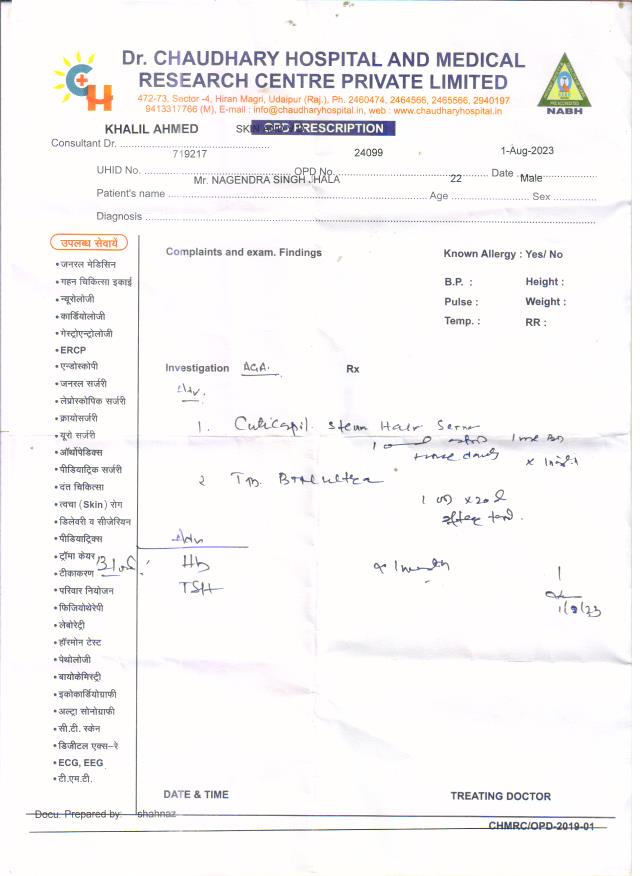 Dr. CHAUDHARY HOSPITAL AND MEDICAL
RESEARCH CENTRE PRIVATE LIMITED
472-73, Sector -4, Hiran Magri, Udaipur (Raj.), Ph. 2460474, 2464566, 2465566, 2940197
9413317766 (M), E-mail : info@chaudharyhospital.in, web : www.chaudharyhospital.in
NABH
KHALIL AHMED SKIN OPD PRESCRIPTION
Consultant Dr.
719217 24099 1-Aug-2023
UHID No. OPD No. Date
Mr. NAGENDRA SINGH JHALA 22 Male
Patient's name Age Sex
Diagnosis
उपलब्ध सेवायें
Complaints and exam. Findings Known Allergy : Yes/ No
• जनरल मेडिसिन
• गहन चिकित्सा इकाई B.P. : Height :
• न्यूरोलोजी Pulse : Weight :
• कार्डियोलोजी Temp. : RR :
• गेस्ट्रोएन्ट्रोलोजी
• ERCP
• एन्डोस्कोपी Investigation AGA. Rx
• जनरल सर्जरी Adv.
• लेप्रोस्कोपिक सर्जरी
• क्रायोसर्जरी 1. Cuticapil Stem Hair
• यूरो सर्जरी
• ऑर्थोपेडिक्स
• पीडियाट्रिक सर्जरी 2
• दंत चिकित्सा
• त्वचा (Skin) रोग
• डिलेवरी व सीजेरियन
• पीडियाट्रिक्स Adv
• ट्रॉमा केयर
• टीकाकरण Hb
• परिवार नियोजन TSH
• फिजियोथेरेपी
• लेबोरेट्री
• हॉरमोन टेस्ट
• पेथोलोजी
• बायोकेमिस्ट्री
• इकोकार्डियोग्राफी
• अल्ट्रा सोनोग्राफी
• सी.टी. स्केन
• डिजीटल एक्स-रे
• ECG, EEG
• टी.एम.टी.
DATE & TIME TREATING DOCTOR
Docu. Prepared by: shahnaz
CHMRC/OPD-2019-01